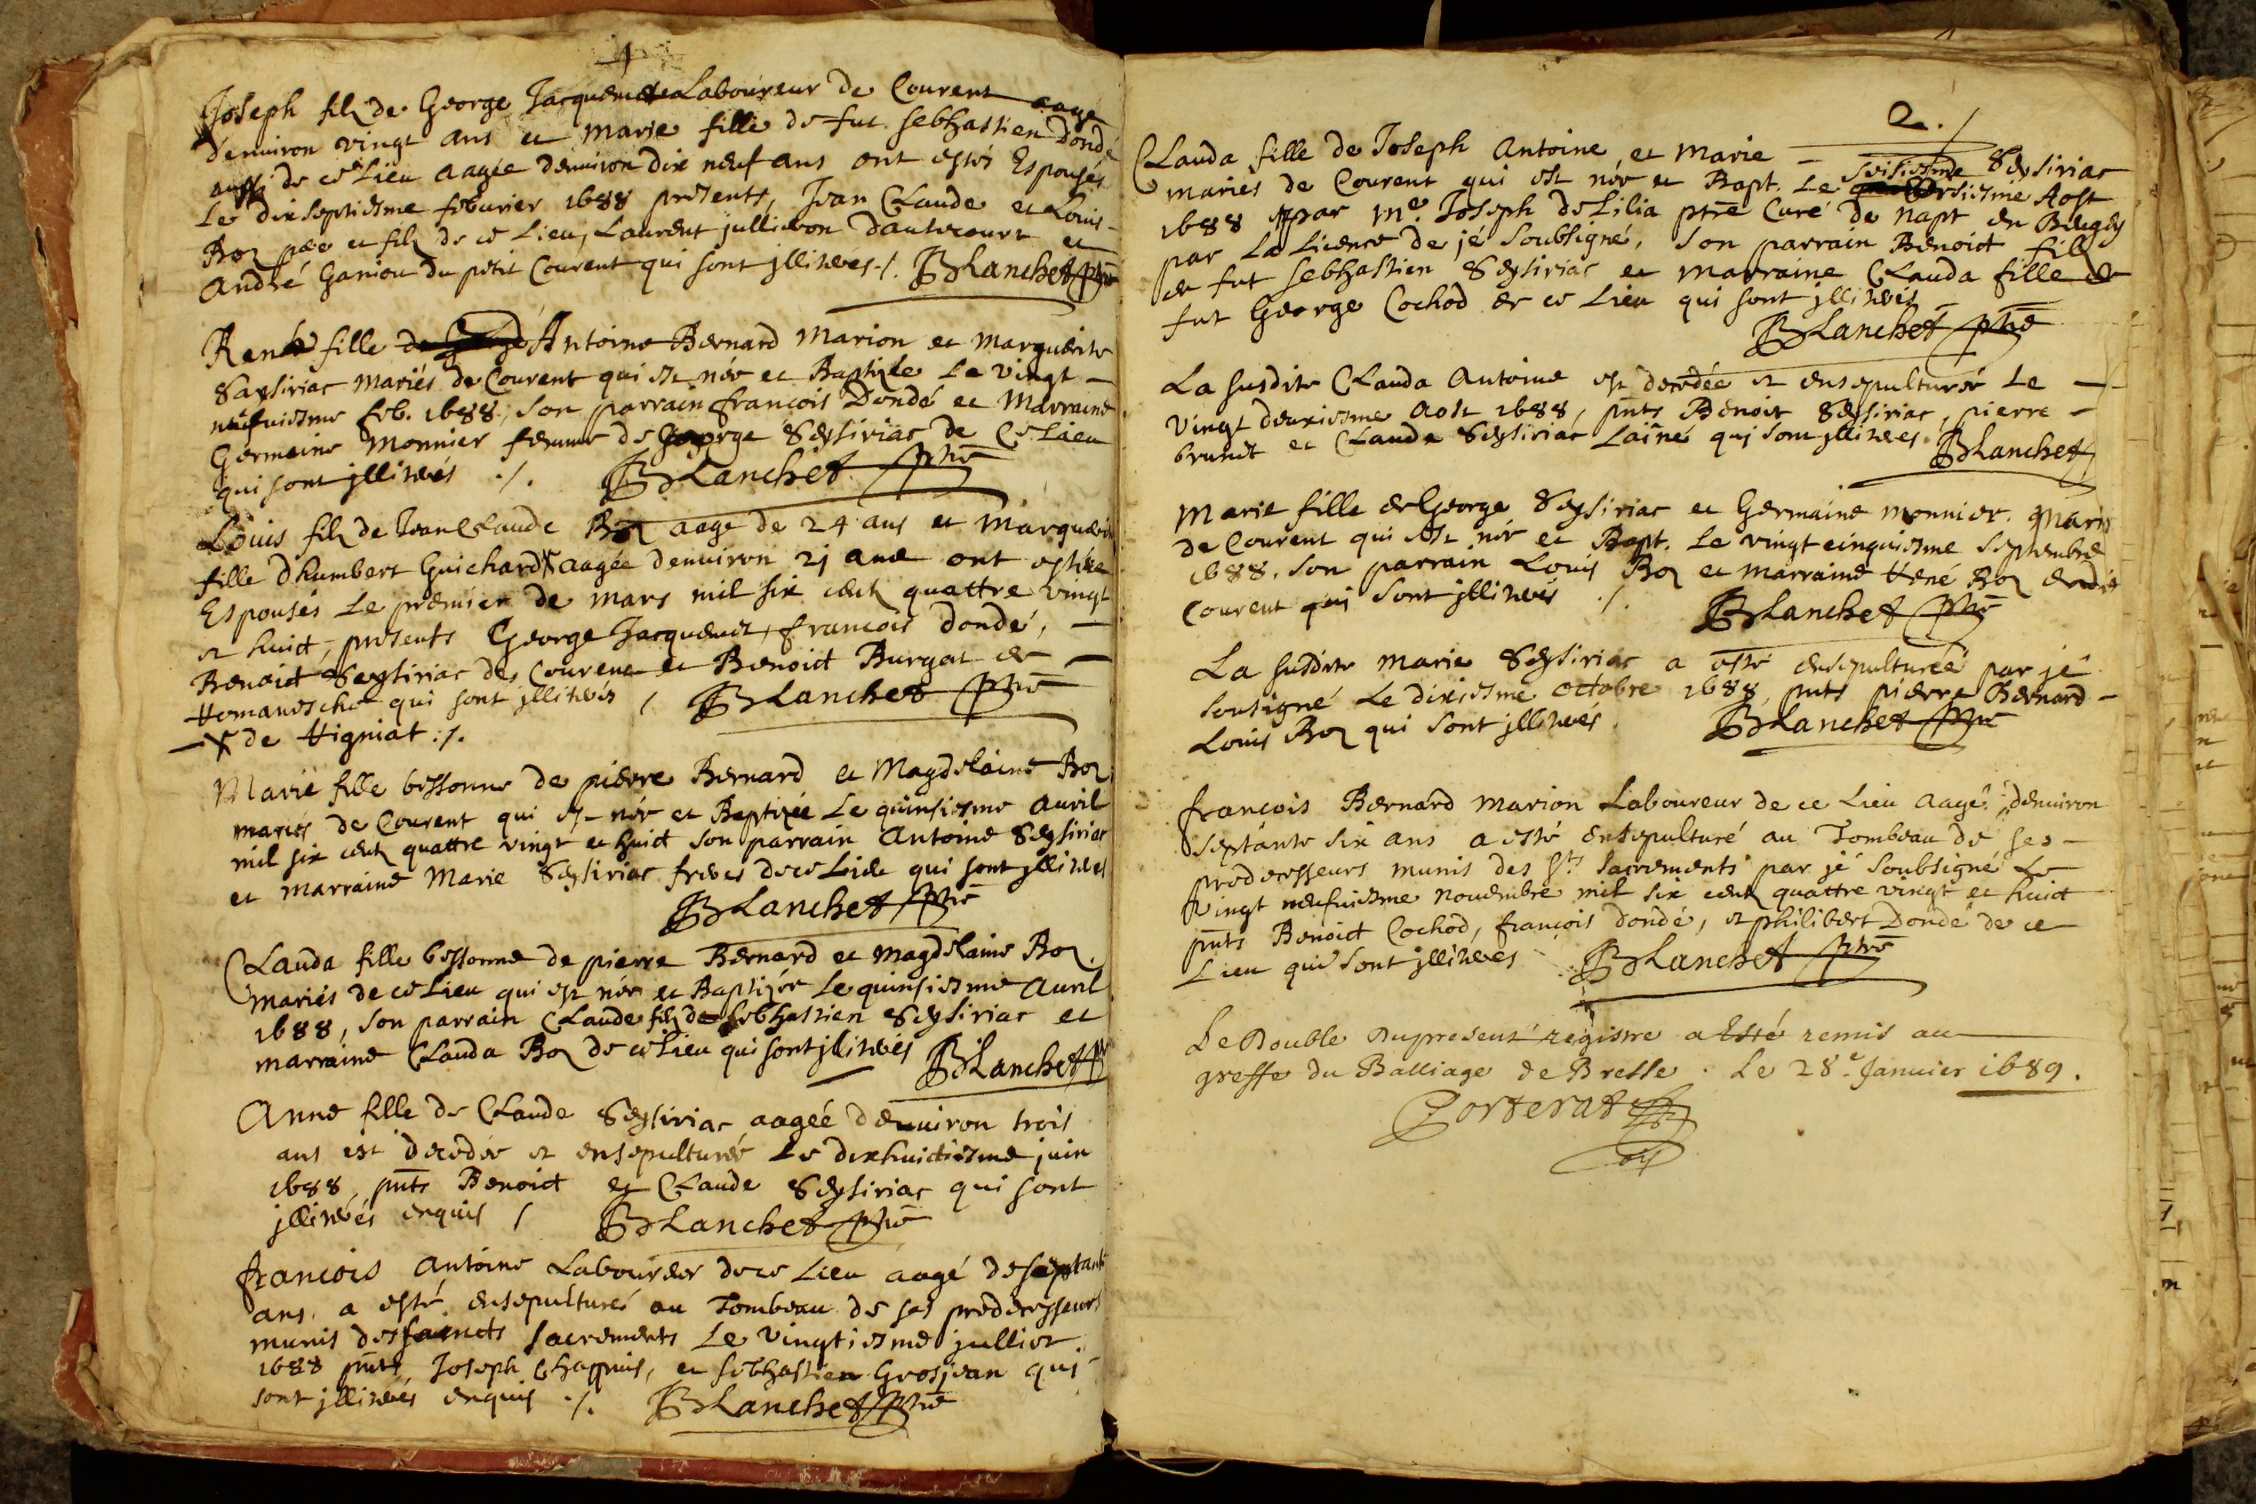 1
Joseph filz de George Jacquemet Laboureur de Courent aagé
denuiron vingt ans et marie fille de fut sebhastien dondé
aussi de ce Lieu aagée denuiron dix neuf ans ont estés Espousés
Le dixseptiesme feburier 1688 presents, Jean CLaude et Louis
Boz pere et filz de ce Lieu, Laurent jullieron dautecourt et
André Ganiou du petit Courent qui sont jllitrés ./. BLanchet ptre
René fille Antoine Bernard Marion et Marguerite
Saysiriac mariés de Courent qui est née et Baptizée Le vingt
neufuiesme feb. 1688, son parrain françois Dondé et Marraine
Germaine Monnier femme de George Seysiriac de Ce Lieu
qui sont jllitrés ./. BLanchet ptre
Louis filz de Jean CLaude Boz aagé de 24 ans et Marguerite
fille dhumbert Guichard X aagée denuiron 21 ans ont estées
Espousés Le premier de mars mil six centz quattre vingt
et huict, presents George Jacquemet, francois dondé,
Benoict Seysiriac de Courent et Benoict Burgat de
Romanesche qui sont jllitrés / BLanchet ptre
X de Rigniat ./.
Marie fille bessonne de pierre Bernard et Magdelaine Boz
mariés de Courent qui est née et Baptizée Le quinsiesme auril
mil six centz quattre vingt et huict son parrain Antoine Seysiriac
et marraine Marie Seysiriac freres de ce Liele qui sont jllitrés
BLanchet ptre
CLauda fille bessonne de pierre Bernard et magdelaine Boz
mariés de ce Lieu qui est née et Baptizée Le quinsiesme Auril
1688, son parrain CLaude filz de sebhastien Seysiriac et
marraine CLauda Boz de ce Lieu qui sont jllitrés BLanchet ptre
Anne fille de CLaude Seysiriac aagée denuiron trois
ans est decedée et ensepulturée Le dixhuictiesme juin
1688, pnts Benoict et CLaude Seysiriac qui sont
jllitrés enquis / BLanchet ptre
francois Antoine Laboureur de ce Lieu aagé de septante
ans a esté ensepulturé au Tombeau de ses predecesseurs
munis des saincts sacrements Le vingtiesme jullier
1688 pnts, Joseph Chappuis, et sebhastien Grosjean qui
sont jllitrés enquis ./. BLanchet ptre
2./
CLauda fille de Joseph Antoine et Marie Seysiriac
mariés de Courent qui est née et Bapt. Le seisiesme Aost
1688 par Me. Joseph de Lilia ptre Curé de napt en Beugey
par La Licence de jé soubsigné, son parrain Benoict filz
de fut sebhastien Seysiriac et marraine CLauda fille de
fut George Cochod de ce Lieu qui sont jllitrés
BLanchet ptre
La susdite CLauda Antoine est decedée et ensepulturée Le
vingt deuxiesme Aost 1688, pnts Benoit Seysiriac, pierre
brunet et CLaude Seysiriac Lainé qui sont jllitrés. BLanchet
Marie fille de George Seysiriac et Germaine monnier mariés
de Courent qui est née et Bapt. Le vingt cinquiesme Septembre
1688. son parrain Louis Boz et marraine René Boz dudit
Courent qui sont jllitrés ./. BLanchet ptre
La susdite Marie Seysiriac a esté ensepulturée par jé
soussigné Le dixiesme octobre 1688, pnts pierre Bernard
Louis Boz qui sont jllitrés. BLanchet ptre
francois Bernard Marion Laboureur de ce Lieu aagé denuiron
septante six ans a esté ensepulturé au Tombeau de ses
predecesseurs munis des Sts Sacrements par jé soubsigné Le
vingt neufuiesme nouembre mil six centz quattre vingt et huict
pnts Benoict Cochod, françois dondé, et philibert Dondé de ce
Lieu qui sont jllitrés BLanchet ptre
Le Double du present registre a Esté remis au
greffe du Balliage de Bresse. Le 28e Januier 1689.
Porterat